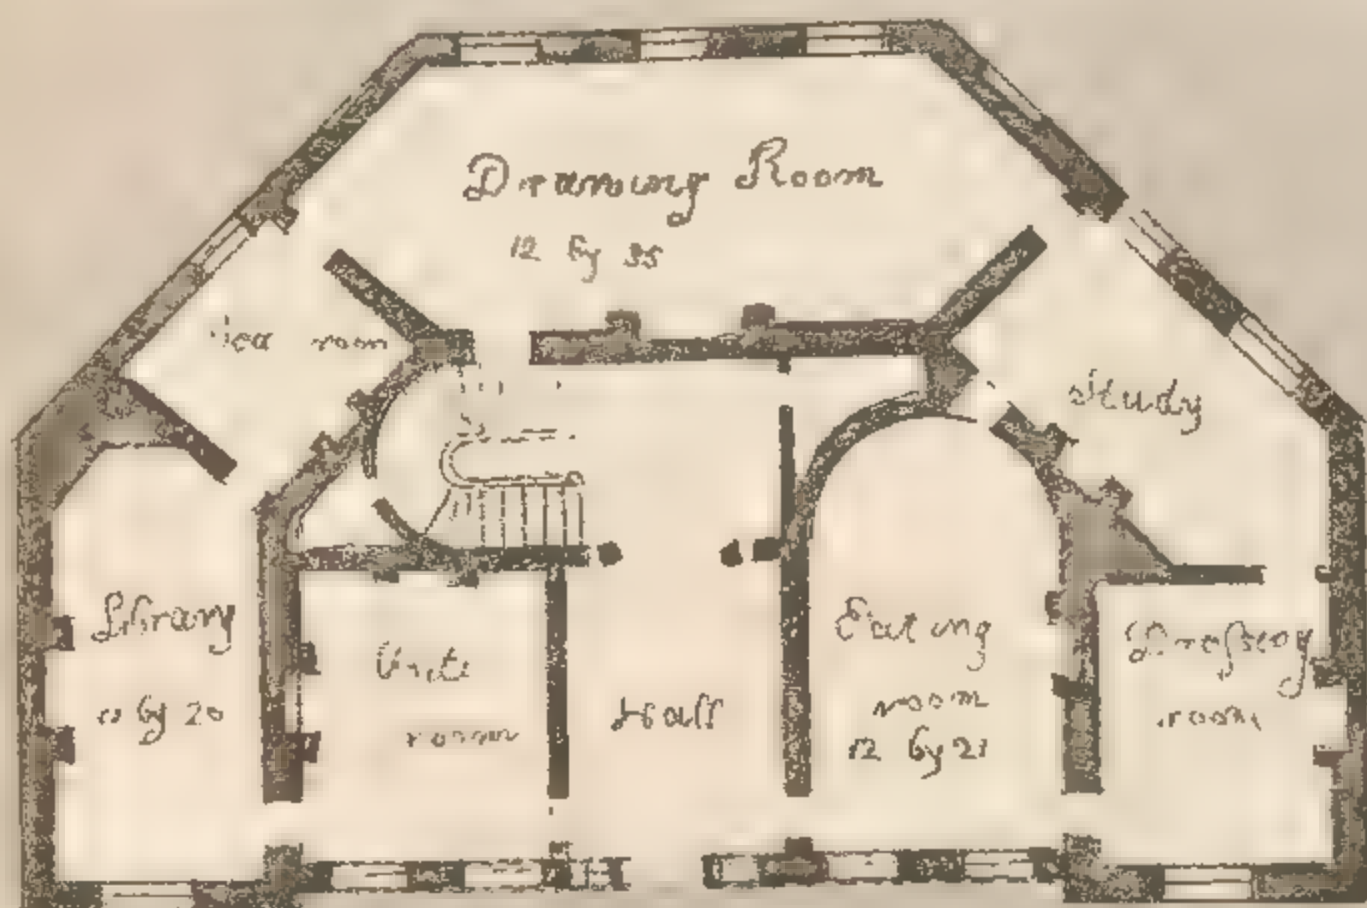 Drawing Room
12 by 35
Tea room
Study
Library
by 20
room
Hall
Eating
room
12 by 21
Dressing
room